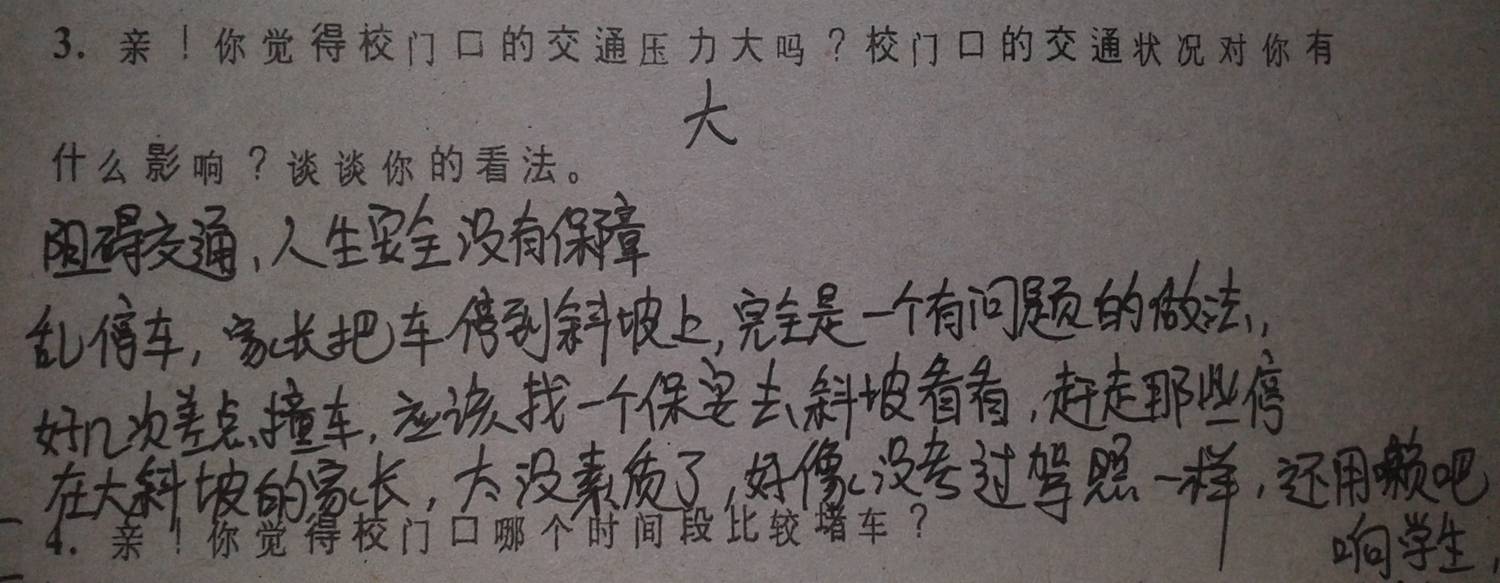 3. 亲！你觉得校门口的交通压力大吗？校门口的交通状况对你有
大
什么影响？谈谈你的看法。
阻碍交通,人生安全没有保障
乱停车,家长把车停到斜坡上,完全是一个有问题的做法,
好几次差点撞车,应该找一个保安去斜坡看看,赶走那些停
在大斜坡的家长,太没素质了,好像没考过驾照一样,还用喇叭
响学生,
4. 亲！你觉得校门口哪个时间段比较堵车？